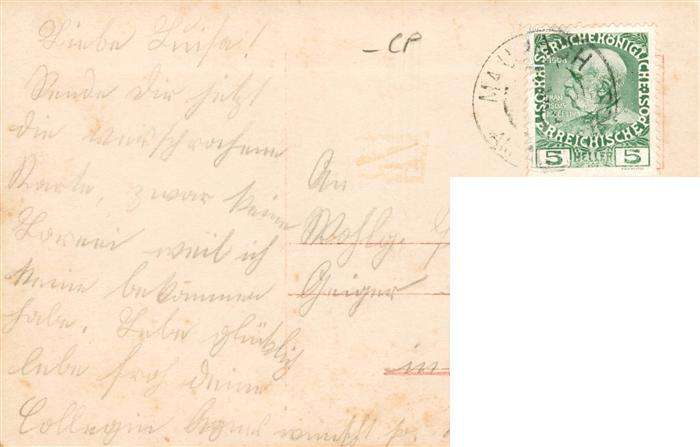 Liebe Luisa!
Sende Dir jetzt
die versprochene
Karte, zwar keine
weil ich
keine bekommen
habe. Lebe glücklich
lebe froh deine
Collegin wünscht
-CP
An
Wohlg.
Geiger
in
MAU H
KAISERLICHE KÖNIGLICHE
1908
ÖSTERREICHISCHE
5 HELLER 5